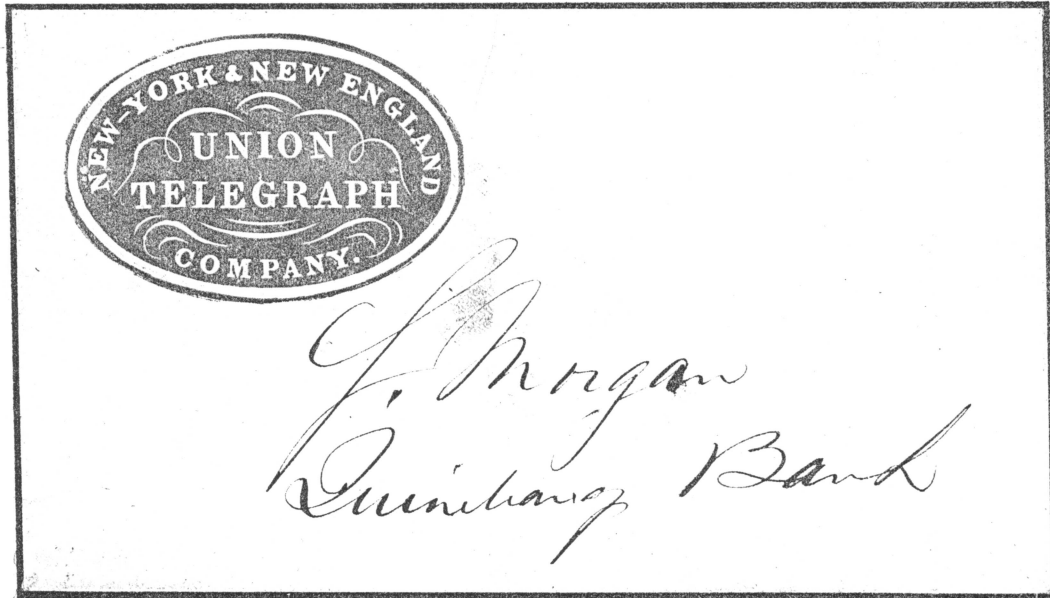 NEW-YORK & NEW ENGLAND
UNION
TELEGRAPH
COMPANY.
J. Morgan
Quinebaug Bank